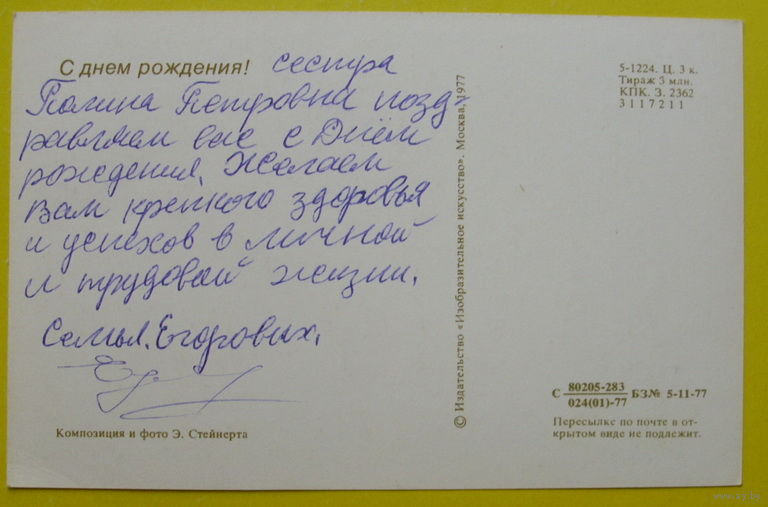 С днем рождения! сестра
Полина Петровна позд-
равляем вас с Днём
рождения. Желаем
Вам крепкого здоровья
и успехов в личной
и трудовой жизни.
Семья Егоровых.
Композиция и фото Э. Стейнерта
© Издательство «Изобразительное искусство». Москва, 1977
5-1224. Ц. 3 к.
Тираж 3 млн.
КПК. З. 2362
3 1 1 7 2 1 1
С 80205-283 БЗ№ 5-11-77
024(01)-77
Пересылке по почте в от-
крытом виде не подлежит.
www.ay.by